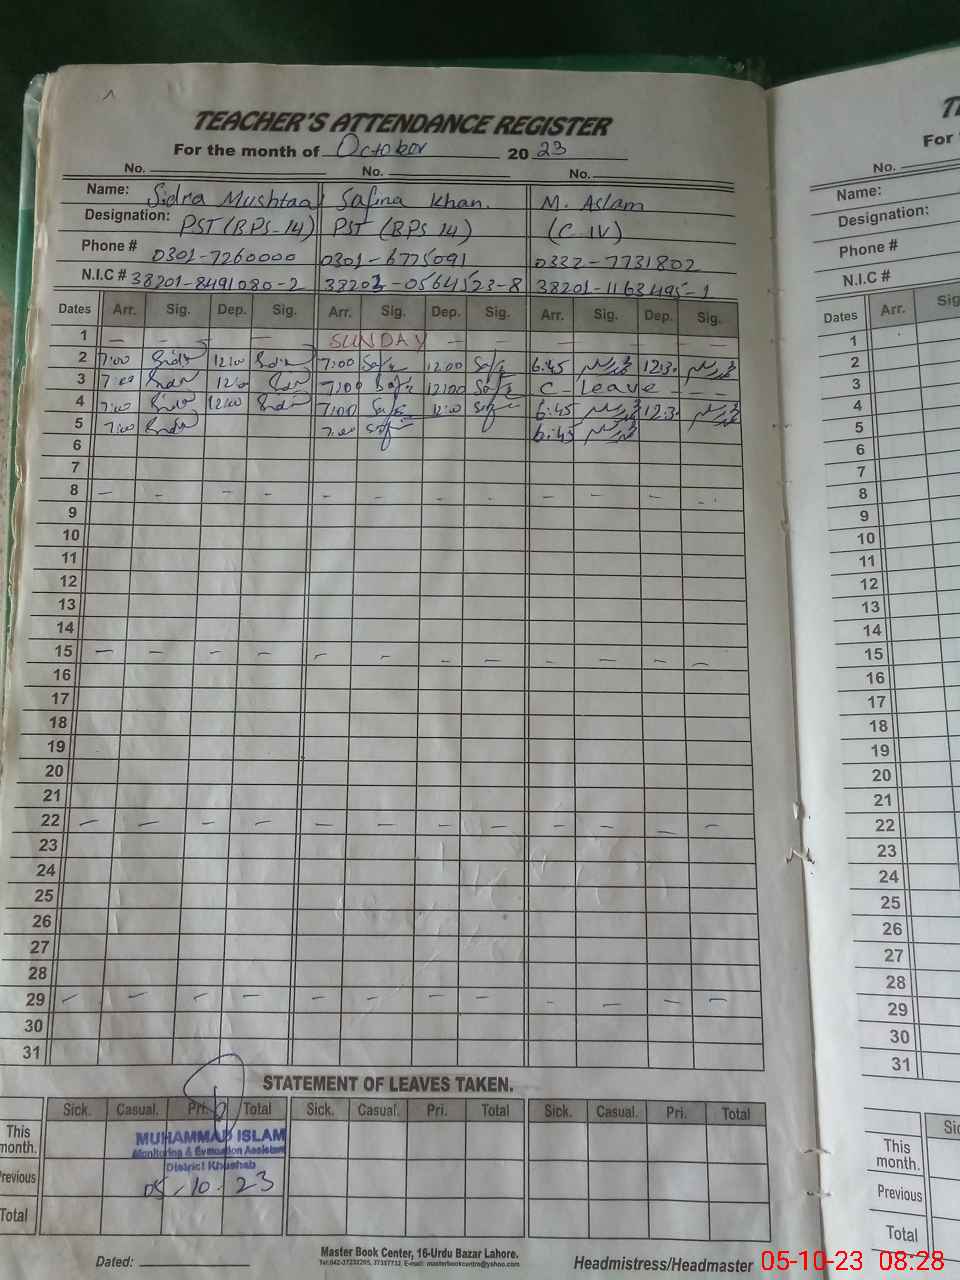 TEACHER'S ATTENDANCE REGISTER
For the month of October 20 23
No. No. No.
Name: Sidra Mushtaq Safina Khan. M. Aslam
Designation: PST (BPS-14) PST (BPS 14) (C IV)
Phone # 0301-7260000 0301-6775091 0332-7731802
N.I.C # 38201-8491080-2 38203-0564523-8 38201-1163495-1
Dates Arr. Sig. Dep. Sig. Arr. Sig. Dep. Sig. Arr. Sig. Dep. Sig.
1 — — — — SUNDAY — — — — — —
2 7:00 Sidra 12:00 Sidra 7:00 Safi 12:00 Safi 6:45 12:30
3 7:00 Sidra 12:00 Sidra 7:00 Safi 12:00 Safi C - Leave - - -
4 7:00 Sidra 12:00 Sidra 7:00 Safi 12:00 Safi 6:45 12:30
5 7:00 Sidra 7:00 Safi 6:45
6
7
8 - - - - - - - - - - - -
9
10
11
12
13
14
15 - - - - - - - - - - - -
16
17
18
19
20
21
22 - - - - - - - - - - - -
23
24
25
26
27
28
29 - - - - - - - - - - - -
30
31
STATEMENT OF LEAVES TAKEN.
Sick. Casual. Pri. Total Sick. Casual. Pri. Total Sick. Casual. Pri. Total
This month.
Previous
Total
MUHAMMAD ISLAM
Monitoring & Evaluation Assistant
District Khushab
05-10-23
Dated:
Master Book Center, 16-Urdu Bazar Lahore.
Headmistress/Headmaster
For
No.
Name:
Designation:
Phone #
N.I.C #
Dates Arr. Sig
1
2
3
4
5
6
7
8
9
10
11
12
13
14
15
16
17
18
19
20
21
22
23
24
25
26
27
28
29
30
31
This month.
Previous
Total
05-10-23 08:28